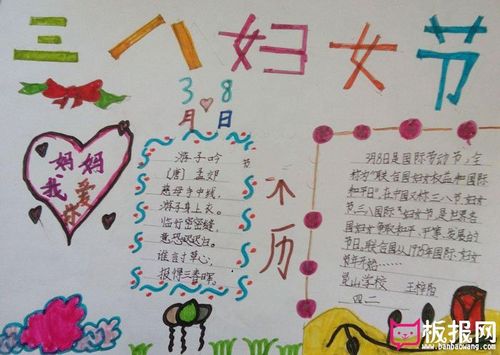 三八妇女节
3 8
月 日
妈妈
我爱
你
游子吟
(唐) 孟郊
慈母手中线,
游子身上衣。
临行密密缝,
意恐迟迟归。
谁言寸草心,
报得三春晖。
节
来
历
3月8日是国际劳动节,全
称为“联合国妇女权益和国际
和平日”。在中国又称三八节、妇女
节、三八国际“妇女节,是世界各
国妇女争取和平、平等、发展的
节日。联合国从1975年国际妇女
年开始……
灵山学校 王梓
四二
板报网
www.banbaowang.com